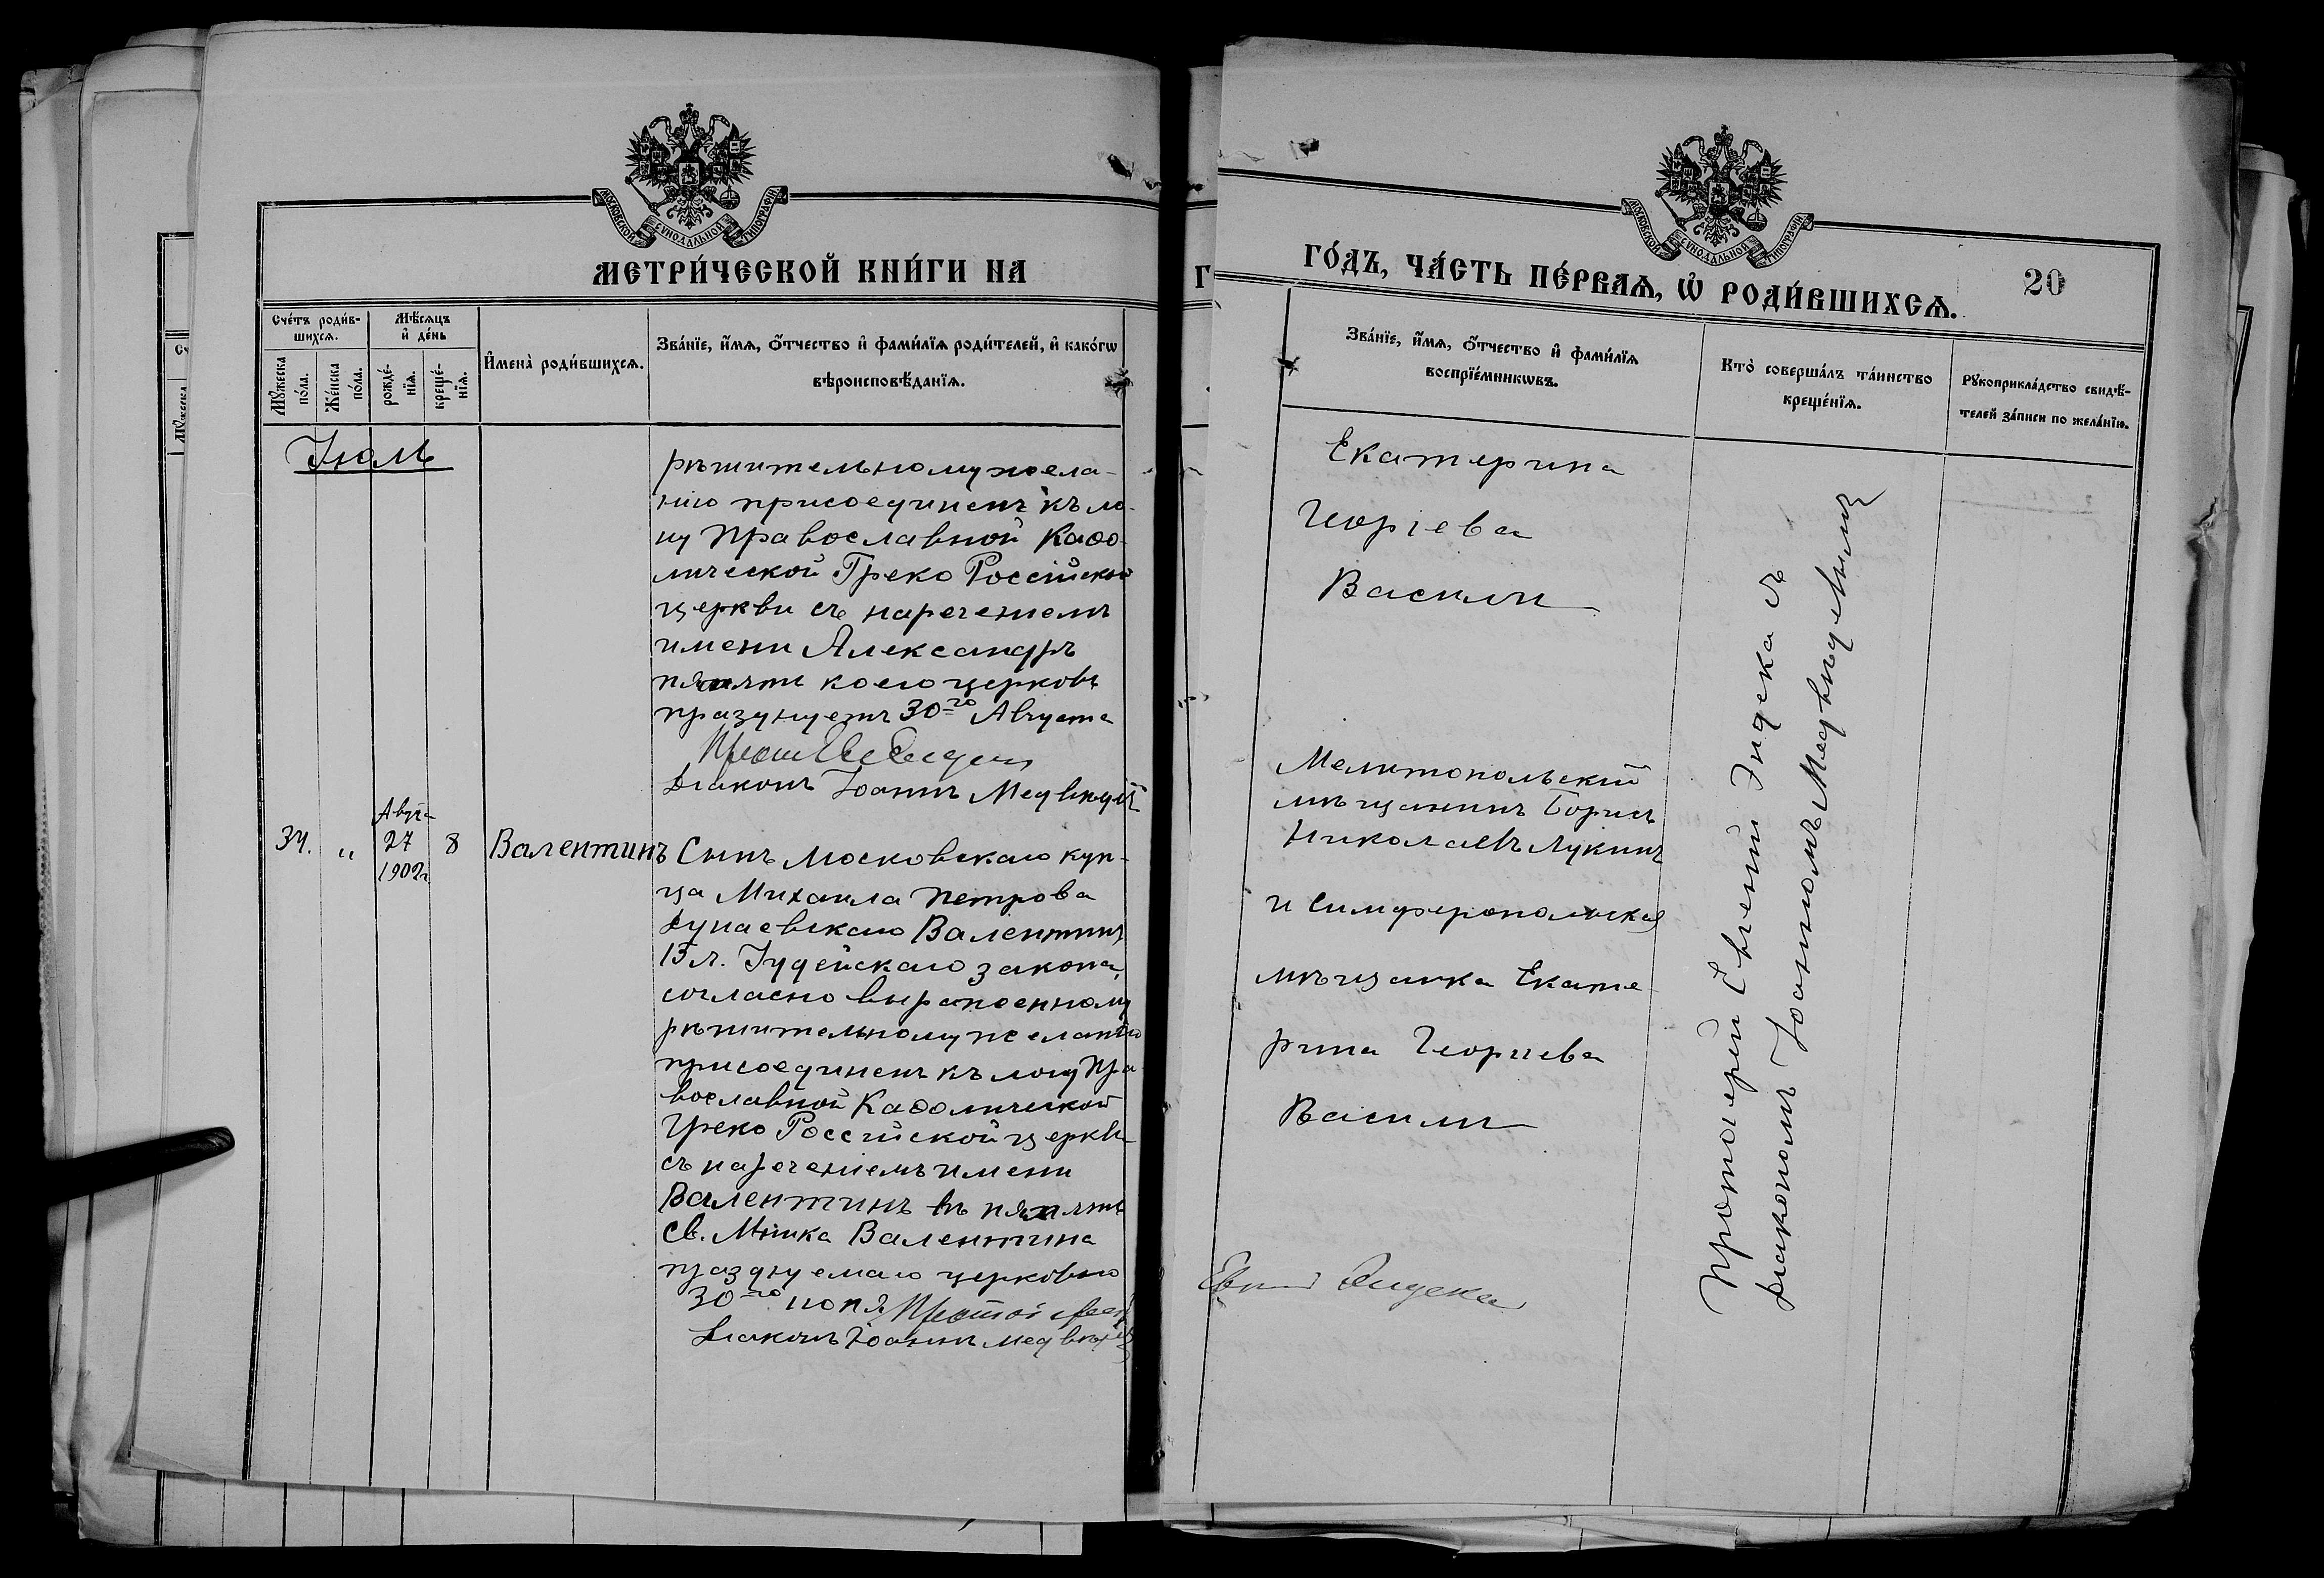 МОСКОВСКОЙ СѴНОДАЛЬНОЙ ТИПОГРАФІИ
МЕТРИ́ЧЕСКОЙ КНИ́ГИ НА
Сче́тъ роди́в-
шихсѧ.
Мѣ́сѧцъ
и҆ де́нь
Мꙋ́жеска
по́ла.
Же́нска
по́ла.
рожде́-
нїѧ.
креще́-
нїѧ.
И҆мена̀ роди́вшихсѧ.
Зва́нїе, и҆́мѧ, ѻ҆́тчество и҆ фами́лїѧ роди́телей, и҆ како́гѡ
вѣроисповѣ́данїѧ.
Іюль
рѣшительному жела-
нію присоединенъ къ ло-
ну Православной Каѳо-
лической Греко Россійской
церкви съ нареченіемъ
имени Александръ
память коего церковь
празднуетъ 30-го Августа
Діаконъ Іоаннъ Медвѣдевъ
34.
"
Авгу-
27
1902г
8
Валентинъ
Сынъ Московскаго куп-
ца Михаила Петрова
Дунаевскаго Валентинъ
13 л. Іудейскаго закона,
согласно выраженному
рѣшительному желанію
присоединенъ къ лону Пра-
вославной Каѳолической
Греко Россійской церкви
съ нареченіемъ имени
Валентинъ въ память
Св. Мчика Валентина
празднуемаго церковью
30-го Протоіерей
Діаконъ Іоаннъ Медвѣдевъ
МОСКОВСКОЙ СѴНОДАЛЬНОЙ ТИПОГРАФІИ
ГО́ДЪ, ЧА́СТЬ ПЕ́РВАѦ, Ѡ҆ РОДИ́ВШИХСѦ.
20
Зва́нїе, и҆́мѧ, ѻ҆́тчество и҆ фами́лїѧ
воспрїе́мникѡвъ.
Кто̀ соверша́лъ та́инство
креще́нїѧ.
Рꙋкоприкла́дство свидѣ́-
телей за́писи по жела́нїю.
Екатерина
Георгіева
Васили
Мелитопольскій
мѣщанинъ Борисъ
Николаевъ Лукинъ
и Симферопольская
мѣщанка Екате-
рина Георгіева
Васили
Евгеній Эндека
Протоіерей Евгеній Эндека съ
діакономъ Іоанномъ Медвѣдевымъ